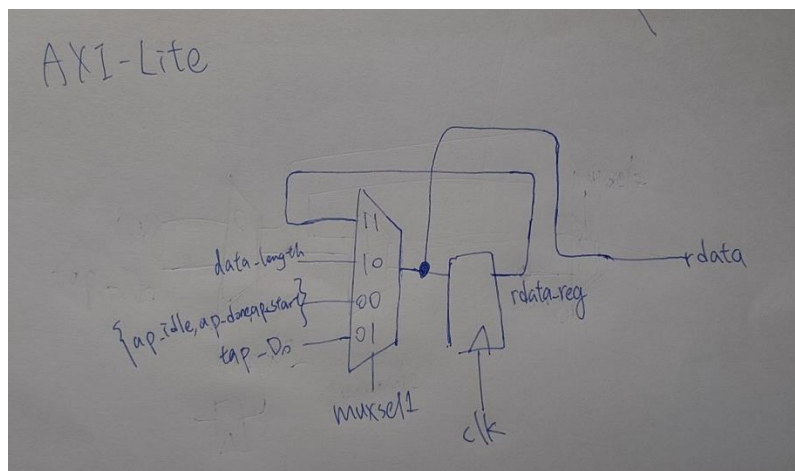 AXI-Lite
11
data_length
10
{ap_idle, ap_done, ap_start}
00
tap_Do
01
muxsel1
rdata_reg
clk
rdata